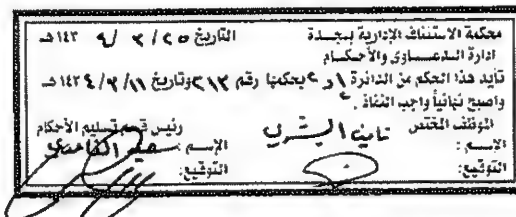 محكمة الاستئناف الإدارية بجدة التاريخ ٢٥ / ٣ / ١٤٣٤هـ
ادارة الدعاوى والأحكام
تأيد هذا الحكم من الدائرة بحكمها رقم ٢١٣ وتاريخ ١١ / ٣ / ١٤٣٤هـ
واصبح نهائياً واجب النفاذ .
الموظف المختص رئيس قسم تسليم الأحكام
الإسم :
الإسم :
التوقيع:
التوقيع: